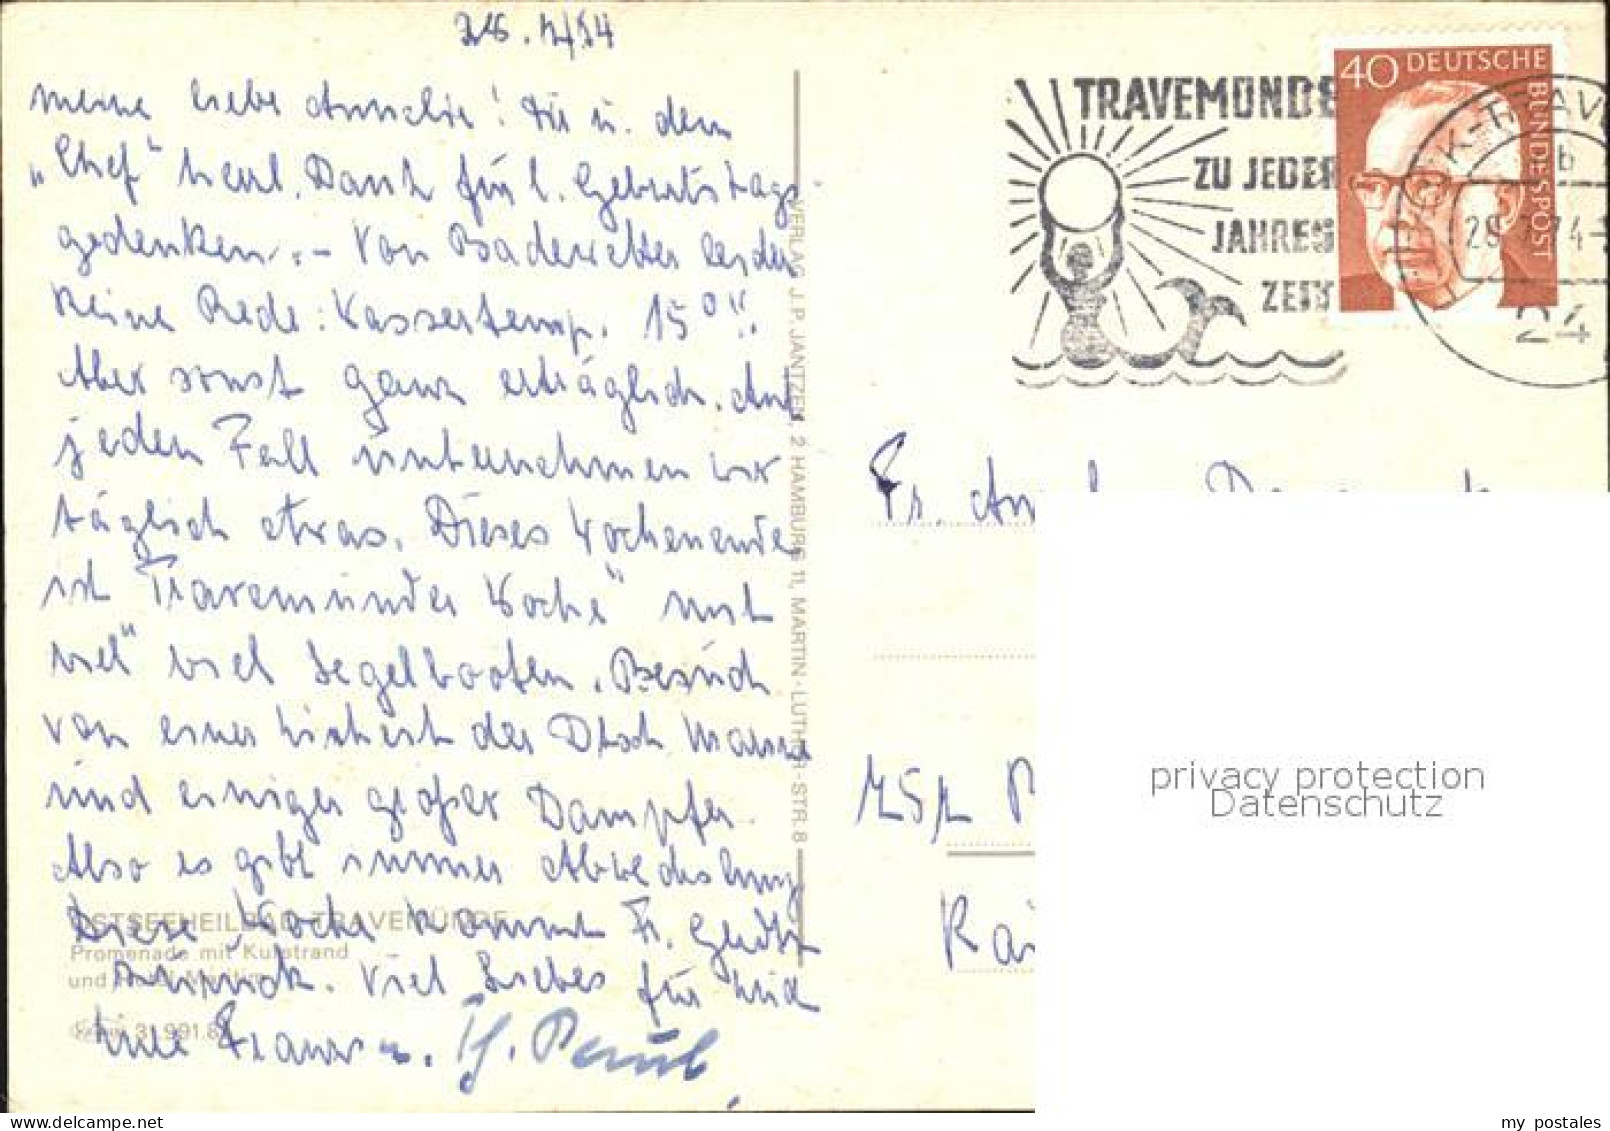 28.7/74
meine liebe Annelie! Dir u. dem
„Chef" herzl. Dank für l. Geburtstags-
gedenken. – Von Badewetter leider
keine Rede: Wassertemp. 15°!!
Aber sonst ganz erträglich. Auf
jeden Fall unternehmen wir
täglich etwas. Dieses Wochenende
ist "Travemünder Woche" mit
viel" viel Segelbooten. Besuch
von einer Einheit der Dtsch Marine
und einiger großer Dampfer.
Also es gibt immer Abwechslung
Diese Woche kommt Fr.
Viel Liebes für Dich
Deine
OSTSEEHEILBAD TRAVEMÜNDE
Promenade mit Kurstrand
und Hotel Maritim
VERLAG J.P. JANTZEN, 2 HAMBURG 11, MARTIN-LUTHER-STR. 8
TRAVEMÜNDE
ZU JEDER
JAHRES
ZEIT
40 DEUTSCHE
BUNDESPOST
LÜBECK-TRAVE
b
28.7.74-
24
Fr.
privacy protection
Datenschutz
my postales